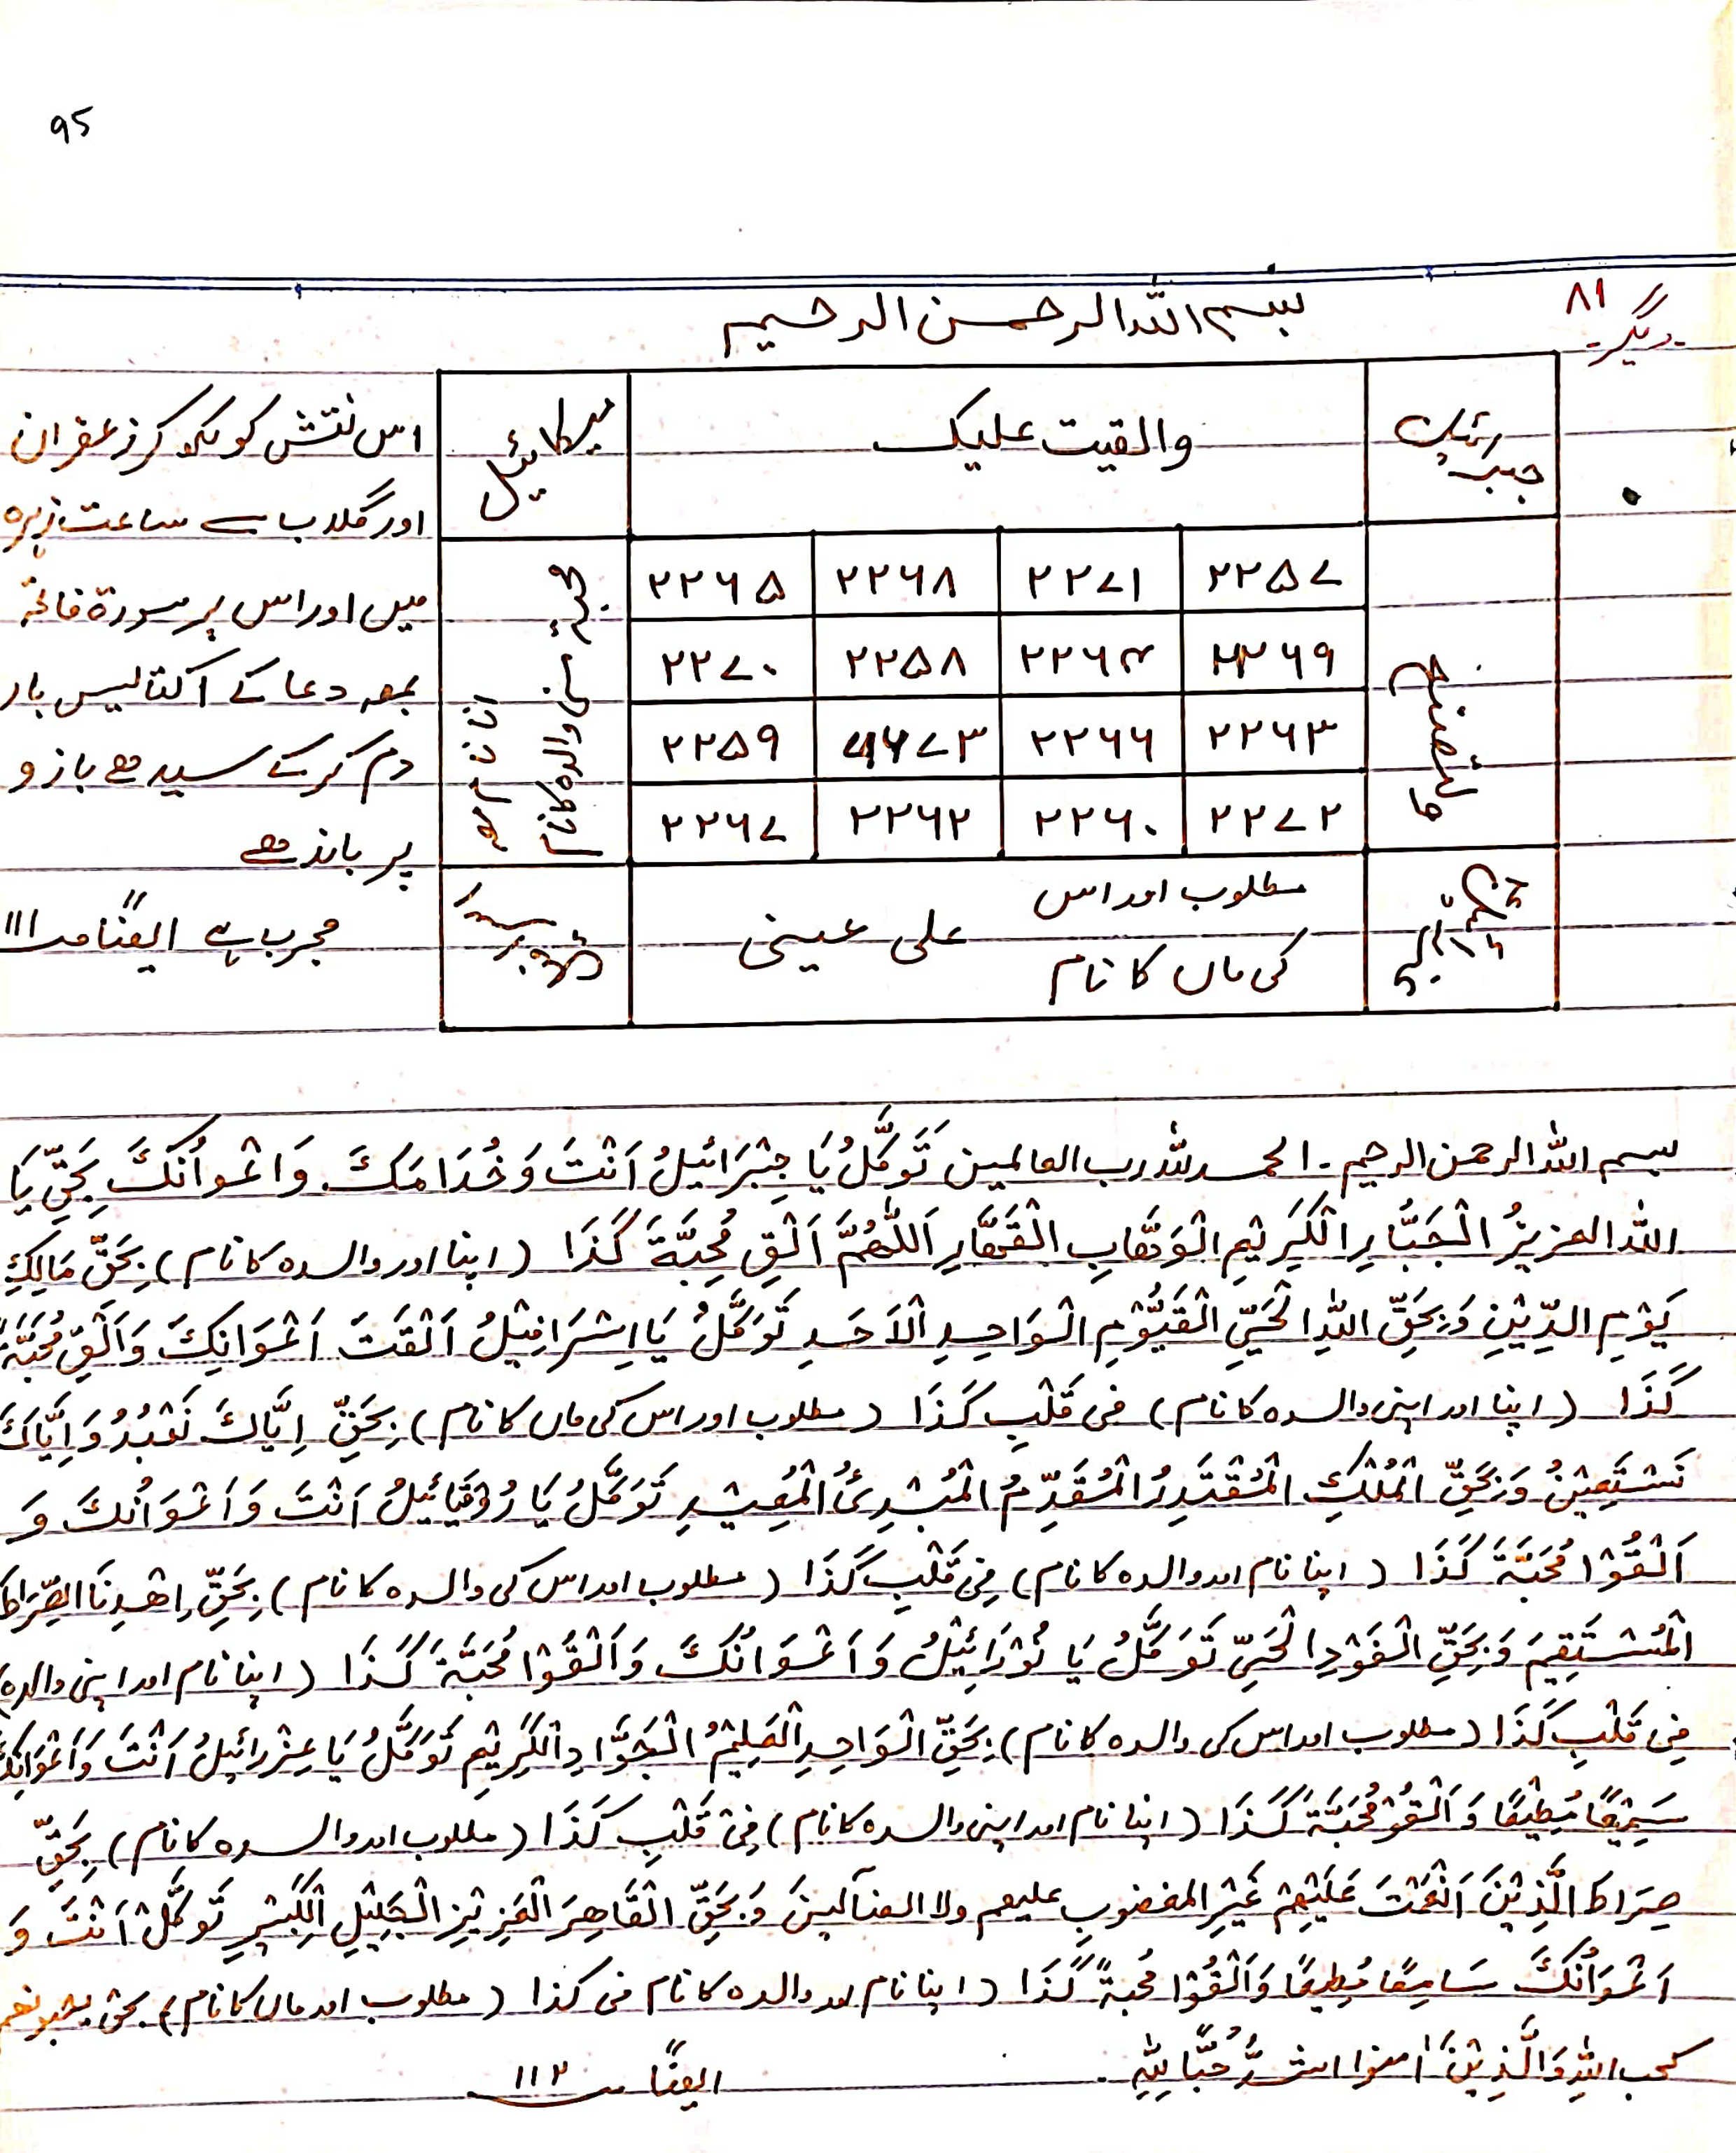 ۹۵
دیگر ۸۱
بسم اللہ الرحمن الرحیم
جبرائیل
والقیت علیک
میکائیل
۲۲۵۷ ۲۲۷۱ ۲۲۶۸ ۲۲۶۵
۲۲۶۹ ۲۲۶۴ ۲۲۵۸ ۲۲۷۰
۲۲۶۳ ۲۲۶۶ ۲۲۷۳ ۲۲۵۹
۲۲۷۲ ۲۲۶۰ ۲۲۶۲ ۲۲۶۷
اپنی والدہ کا نام
مطلوب اور اس
کی ماں کا نام
علی عینی
اس نقش کو لکھ کر زعفران
اور گلاب سے ساعت زہرہ
میں اور اس پر سورۃ فاتحہ
بمعہ دعا کے اکتالیس بار
دم کرکے سیدھے بازو
پر باندھے
مجرب ہے ایضًا صـ ۱۱۱
بسم اللہ الرحمن الرحیم ۔ الحمد للہ رب العالمین تَوَکَّلُ یَا جِبْرَائِیلُ اَنْتَ وَخُدَامَکَ وَاعْوانُکَ بَحَقِّ یَا
اللہ العزیزُ الْجَبَّارِ الْکَرِیْمِ الْوَهَّابِ الْقَهَّارِ اَللّٰهُمَّ اَلْقِ مُحِبَّةَ کَذَا (اپنا اور والدہ کا نام) بِحَقِّ مَالِکِ
یَوْمِ الدِّیْنِ وَبِحَقِّ اللهِ الْحَیِّ الْقَیُّوْمِ الْوَاحِدِ الْاَحَدِ تَوَکَّلُ یَا اِسْرَافِیْلُ اَلْقَتَ اَعْوَانِکَ وَاَلْقِ مُحَبَّةَ
کَذَا (اپنا اور اپنی والدہ کا نام) فِی قَلْبِ کَذَا (مطلوب اور اس کی ماں کا نام) بِحَقِّ اِیَّاکَ نَعْبُدُ وَاِیَّاکَ
نَسْتَعِیْنُ وَبِحَقِّ الْمُلْکِ الْمُقْتَدِرُ الْمُقَدِّمُ الْمُبْدِئُ الْمُعِیْدِ تَوَکَّلُ یَا رُوْقَیَائِیْلُ اَنْتَ وَاَعْوَانُکَ وَ
اَلْقُوْا مُحَبَّةَ کَذَا (اپنا نام اور والدہ کا نام) فِیْ قَلْبِ کَذَا (مطلوب اور اس کی والدہ کا نام) بِحَقِّ اِهْدِنَا الصِّرَاطَ
الْمُسْتَقِیْمَ وَبِحَقِّ الْفَرْدِ الْحَیِّ تَوَکَّلُ یَا نُوْرَائِیْلُ وَاَعْوَانُکَ وَاَلْقُوْا مُحَبَّةَ کَذَا (اپنا نام اور اپنی والدہ)
فِیْ قَلْبِ کَذَا (مطلوب اور اس کی والدہ کا نام) بِحَقِّ الْوَاحِدِ الْعَلِیْمُ الْجَوَّادِ الْکَرِیْمِ تَوَکَّلُ یَا عِزْرَائِیْلُ اَنْتَ وَاَعْوَانِکَ
سَمِیْعًا مُطِیْعًا وَاَلْقُوْ مُحَبَّةَ کَذَا (اپنا نام اور اپنی والدہ کا نام) فِیْ قَلْبِ کَذَا (مطلوب اور والدہ کا نام) بِحَقِّ
صِرَاطَ الَّذِیْنَ اَنْعَمْتَ عَلَیْهِمْ غَیْرِ المغضوبِ علیهم ولا الضآلینَ وَبِحَقِّ الْقَاهِرَ الْعَزِیْزِ الْجَلِیْلِ الْکَبِیْرِ تَوَکَّلْ اَنْتَ وَ
اَعْوَانُکَ سَامِعًا مُطِیعًا وَاَلْقُوْا مُحَبةً کَذَا (اپنا نام اور والدہ کا نام فی کذا (مطلوب اور ماں کا نام) بحق یحبونهم
کحب اللهِ وَالَّذِیْنَ اٰمنوا اشدُّ حُبًّا لِلّٰهِ ۔ ایضًا صـ ۱۱۲